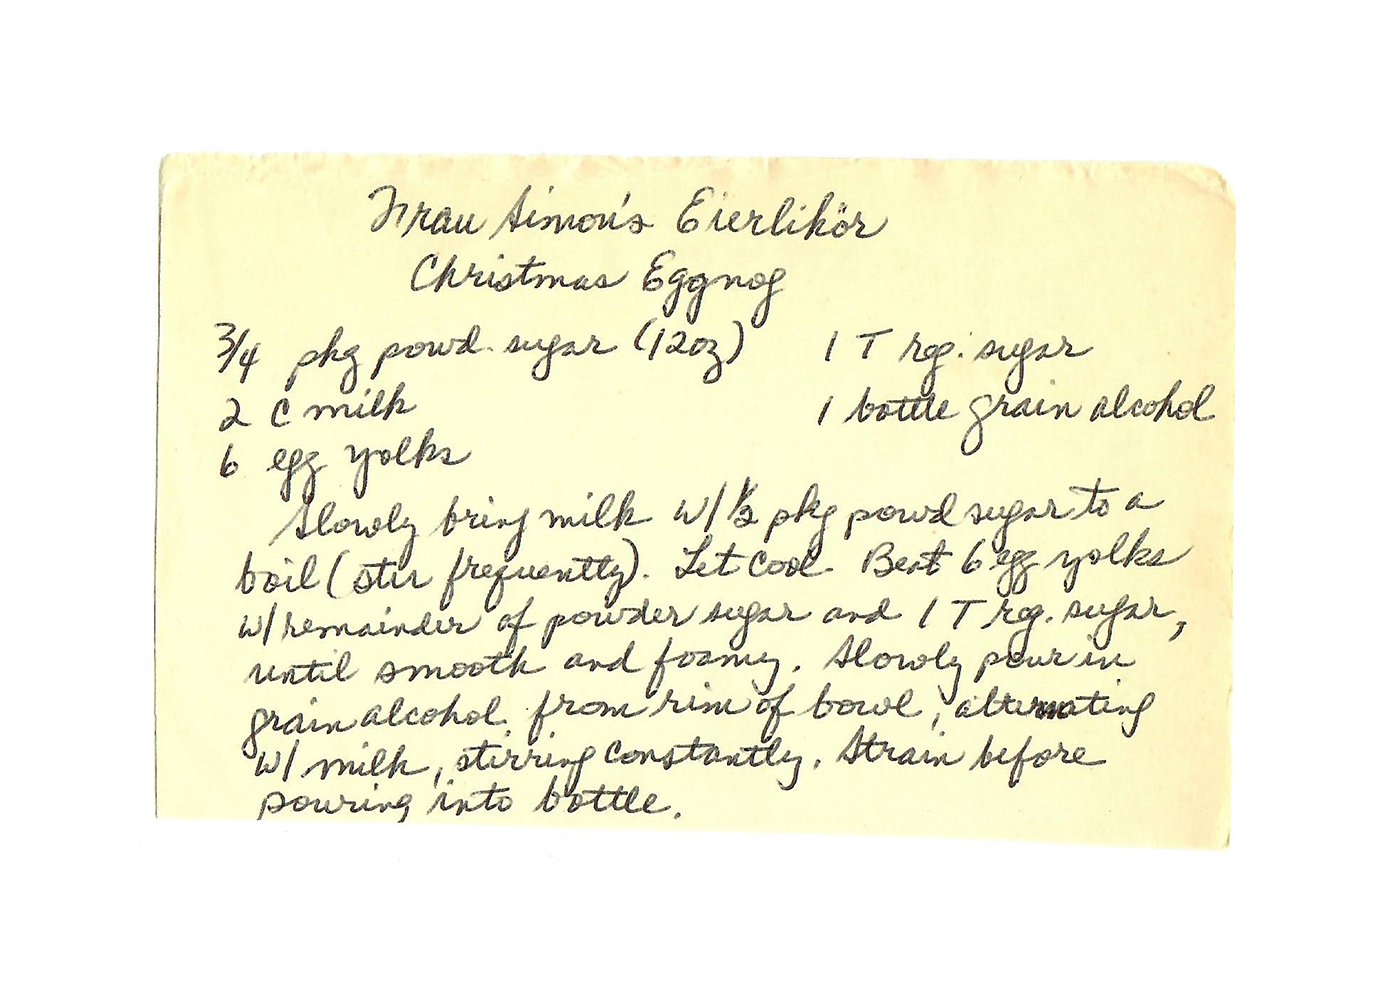 Frau Simon's Eierlikör
Christmas Eggnog
3/4 pkg powd. sugar (12oz)
1 T reg. sugar
2 C milk
1 bottle grain alcohol
6 egg yolks
Slowly bring milk w/ 1/2 pkg powd sugar to a
boil (stir frequently). Let cool. Beat 6 egg yolks
w/ remainder of powder sugar and 1 T reg. sugar,
until smooth and foamy. Slowly pour in
grain alcohol from rim of bowl, alternating
w/ milk, stirring constantly. Strain before
pouring into bottle.